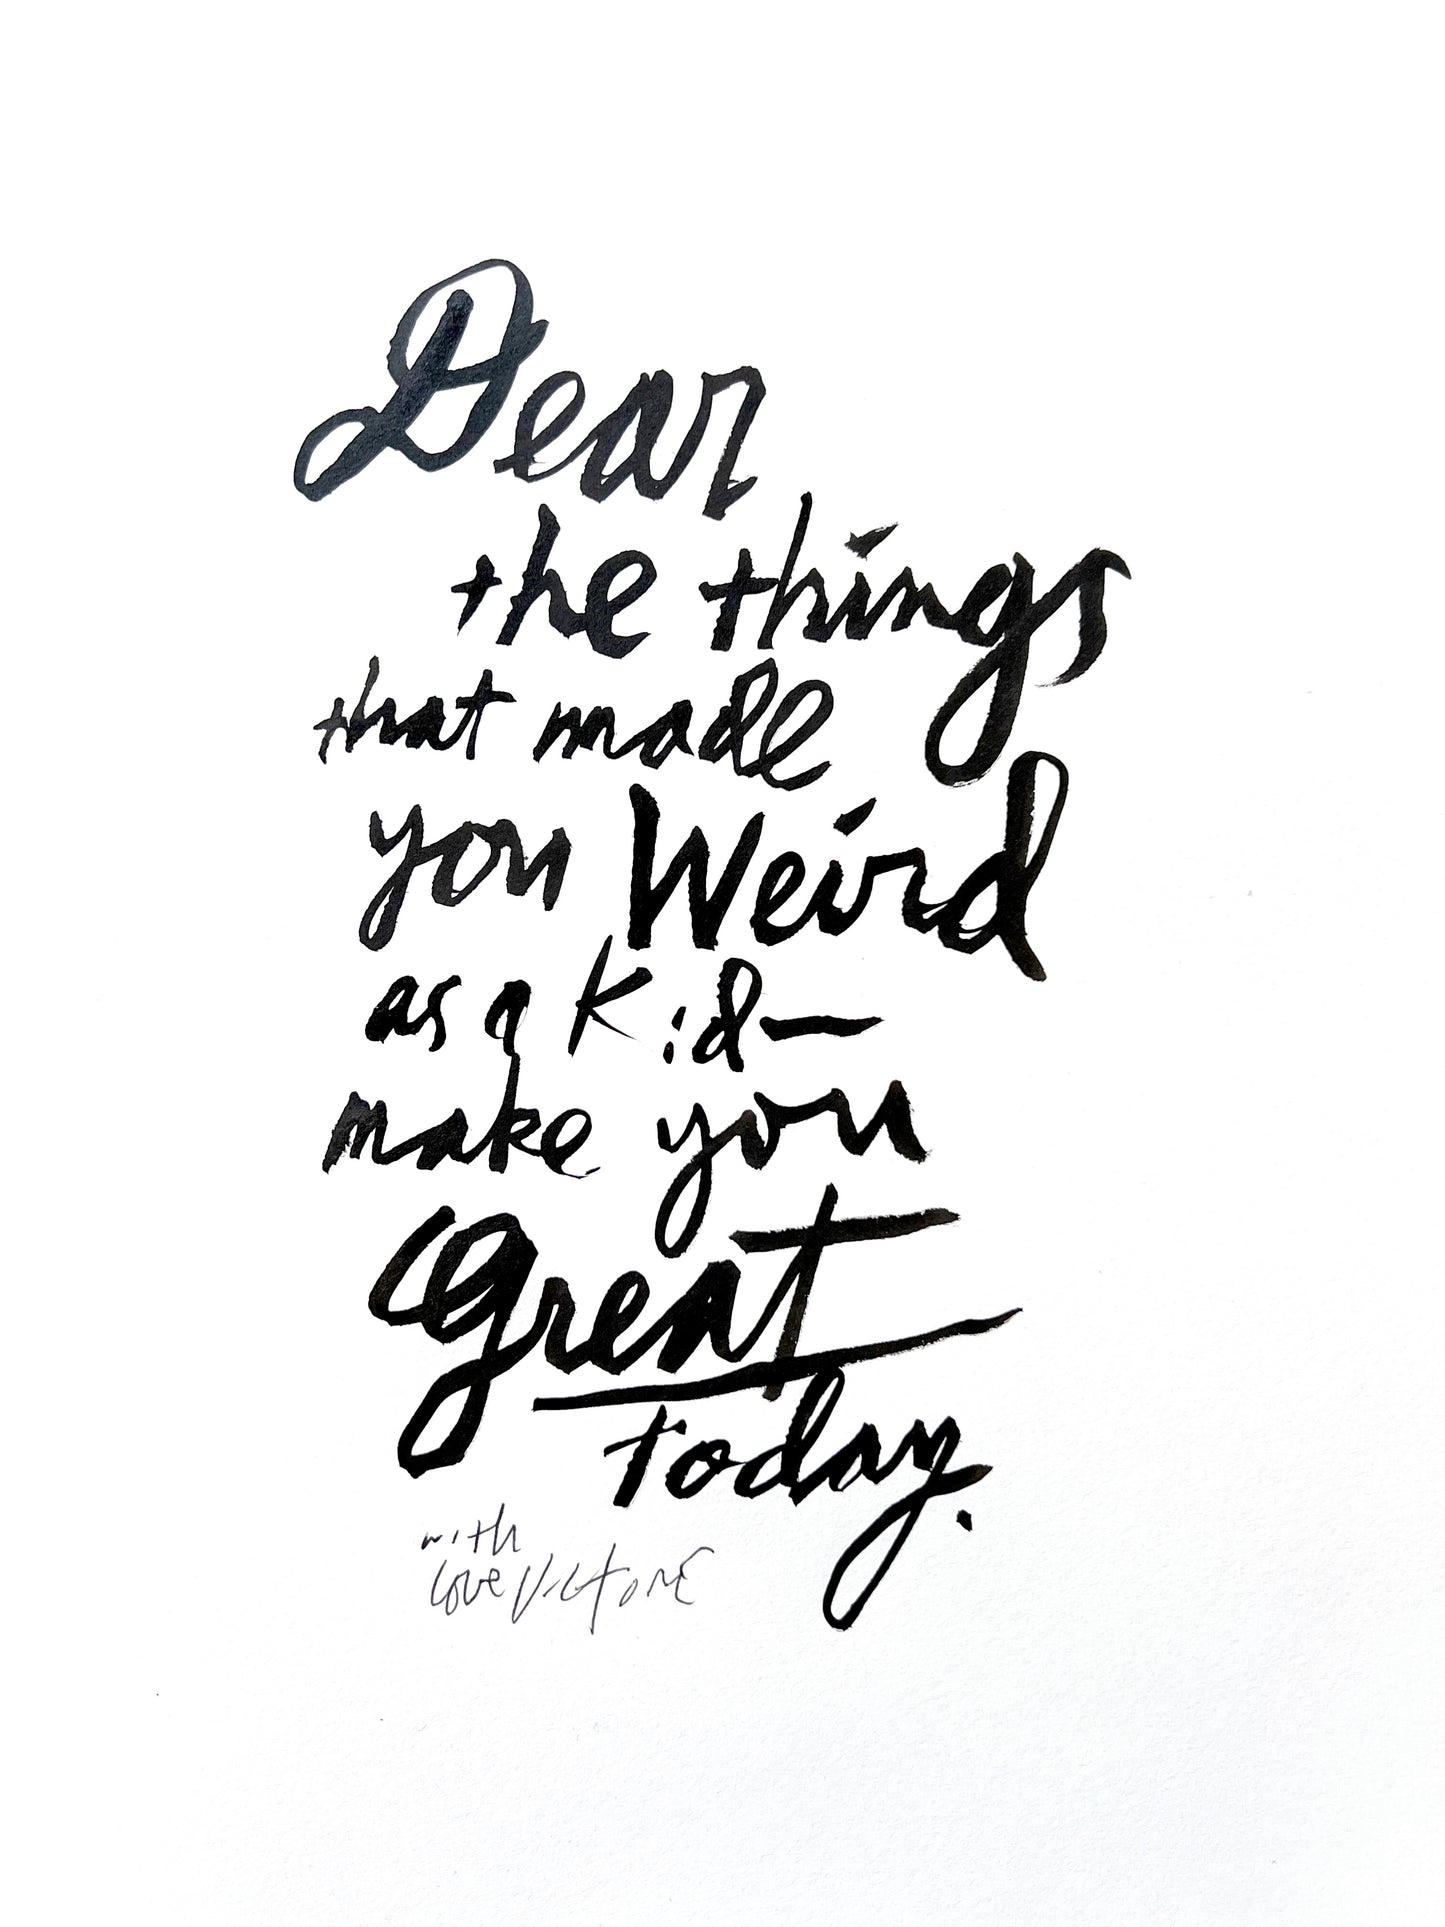 Dear
the things
that made
you Weird
as a Kid—
make you
Great
Today.
with
love Victore